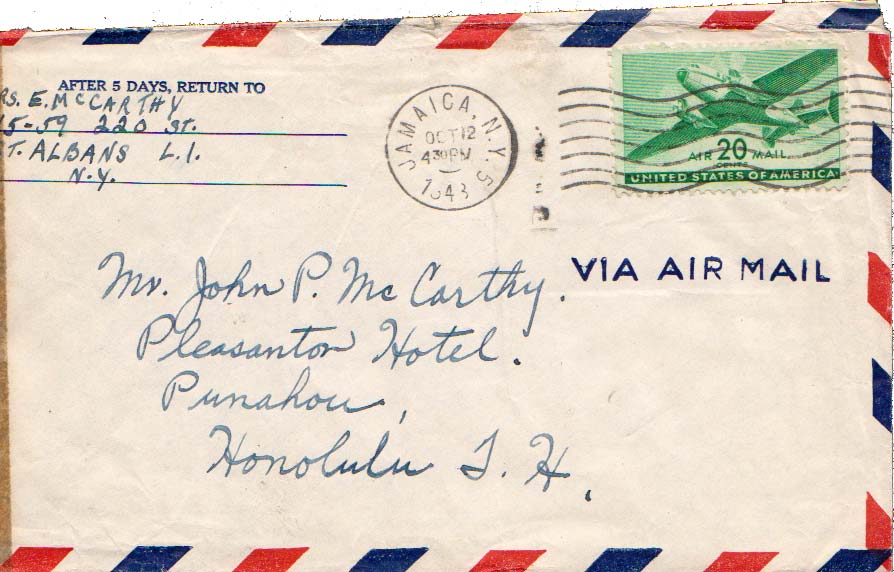 AFTER 5 DAYS, RETURN TO
RS. E. McCARTHY
15-59 220 ST.
T. ALBANS L.I.
N.Y.
JAMAICA, N.Y. 5
OCT 12
430PM
1943
AIR 20 MAIL
CENTS
UNITED STATES OF AMERICA
VIA AIR MAIL
Mr. John P. McCarthy.
Pleasanton Hotel.
Punahou,
Honolulu T. H.